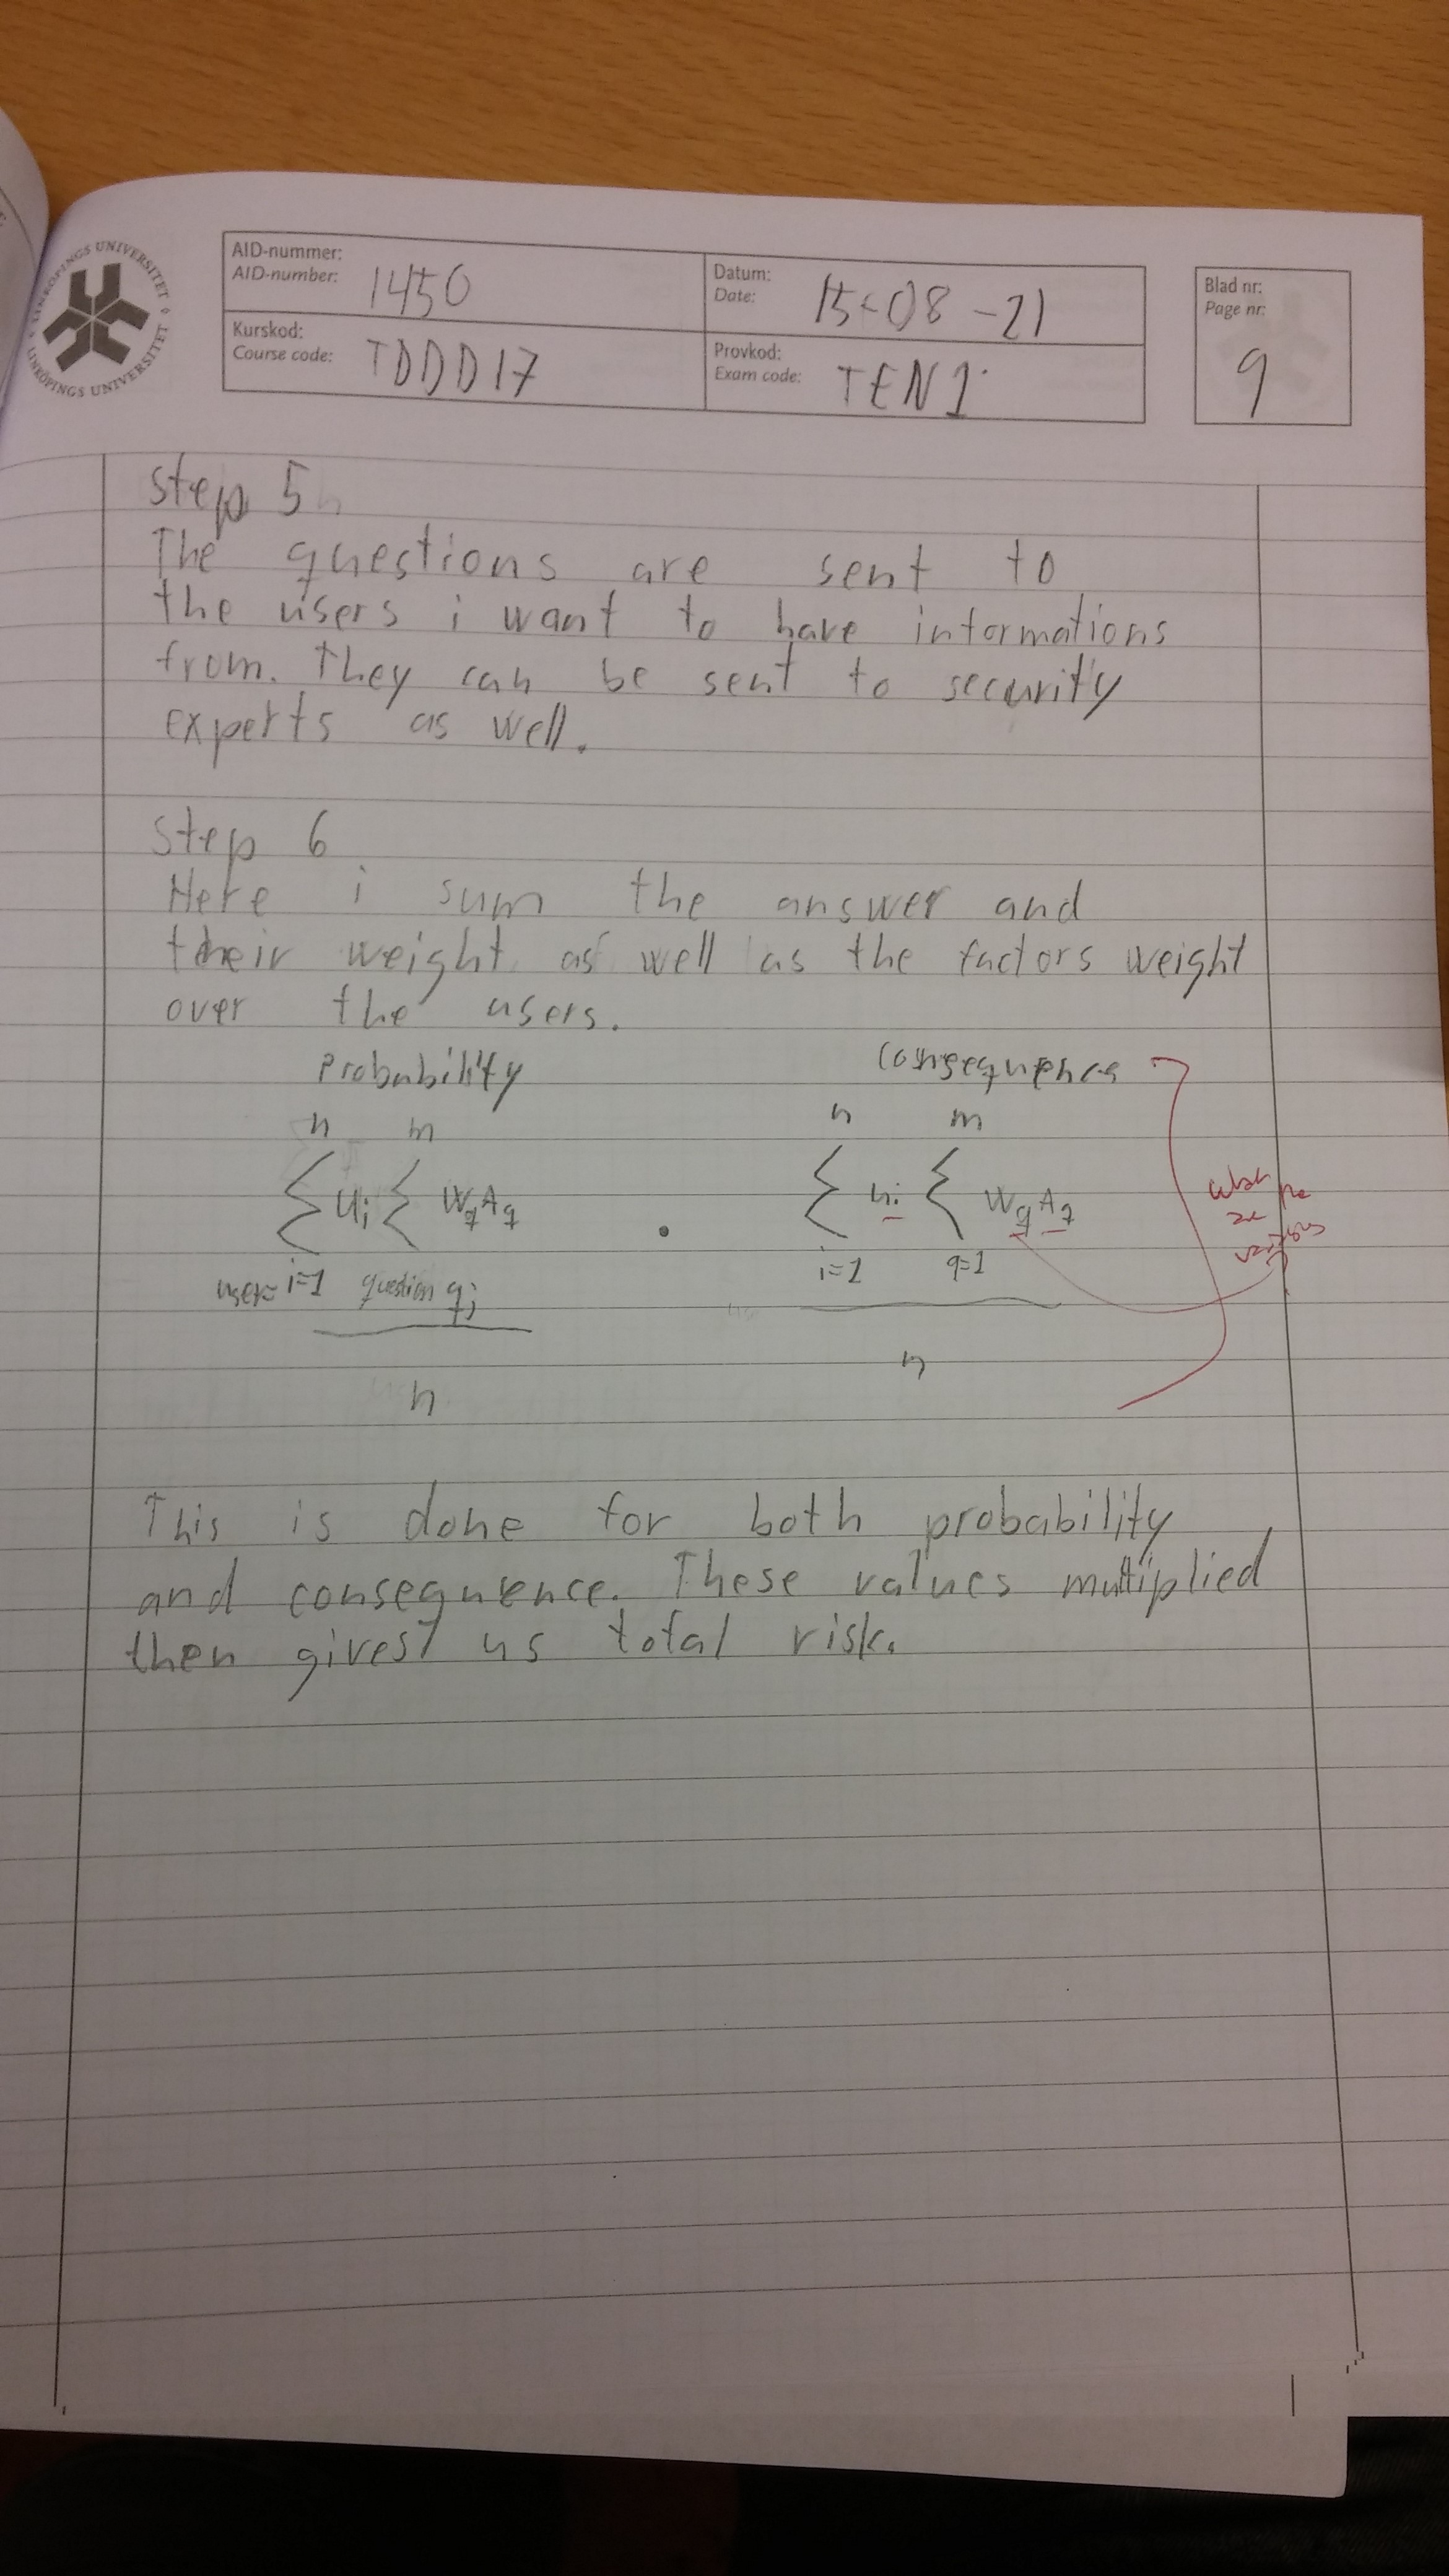 LINKÖPINGS UNIVERSITET
LINKÖPINGS UNIVERSITET
AID-nummer:
AID-number: 1450
Datum:
Date: 15-08-21
Blad nr:
Page nr:
9
Kurskod:
Course code: TDDD17
Provkod:
Exam code: TEN1
Step 5
The questions are sent to
the users i want to have informations
from. They can be sent to security
experts as well.
Step 6
Here i sum the answer and
their weight as well as the factors weight
over the users.
Probability
Consequence
n m
n m
∑ Ui ∑ WqAq · ∑ Ui ∑ WqAq
user= i=1 question qj
i=1 q=1
n
n
what are the
This is done for both probability
and consequence. These values multiplied
then gives us total risk.